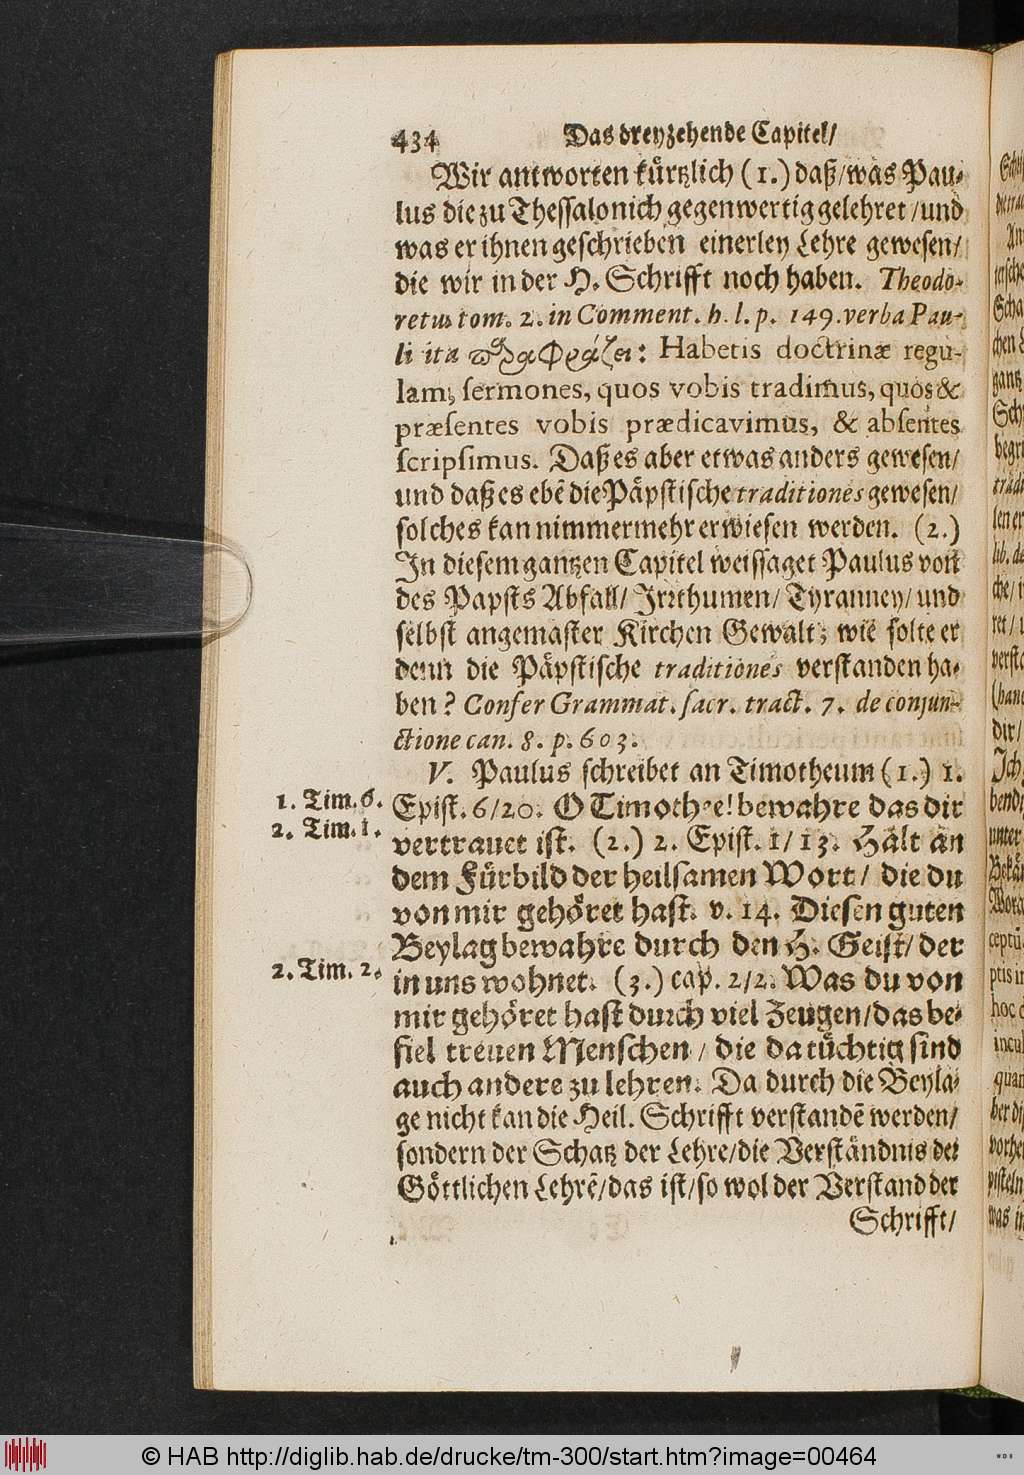 434 Das dreyzehende Capitel/
Wir antworten kürtzlich (1.) daß/was Pau-
lus die zu Thessalonich gegenwertig gelehret/und
was er ihnen geschrieben einerley Lehre gewesen/
die wir in der H. Schrifft noch haben. Theodo-
retus tom. 2. in Comment. h. l. p. 149. verba Pau-
li ita παραφράζει: Habetis doctrinæ regu-
lam, sermones, quos vobis tradimus, quos &
præsentes vobis prædicavimus, & absentes
scripsimus. Daß es aber etwas anders gewesen/
und daß es ebē die Päpstische traditiones gewesen/
solches kan nimmermehr erwiesen werden. (2.)
In diesem gantzen Capitel weissaget Paulus von
des Papsts Abfall/ Irrthumen/ Tyranney/ und
selbst angemaster Kirchen Gewalt; wie solte er
denn die Päpstische traditiones verstanden ha-
ben? Confer Grammat. sacr. tract. 7. de conjun-
ctione can. 8. p. 603.
V. Paulus schreibet an Timotheum (1.) 1.
1. Tim. 6. Epist. 6/20. O Timothee! bewahre das dir
2. Tim. 1. vertrauet ist. (2.) 2. Epist. 1/13. Halt an
dem Fürbild der heilsamen Wort/ die du
von mir gehöret hast. v. 14. Diesen guten
Beylag bewahre durch den H. Geist/ der
2. Tim. 2. in uns wohnet. (3.) cap. 2/2. Was du von
mir gehöret hast durch viel Zeugen/das be-
fiel treuen Menschen/ die da tüchtig sind
auch andere zu lehren. Da durch die Beyla-
ge nicht kan die Heil. Schrifft verstandē werden/
sondern der Schatz der Lehre/die Verständnis der
Göttlichen Lehrē/das ist/so wol der Verstand der
Schrifft/
© HAB http://diglib.hab.de/drucke/tm-300/start.htm?image=00464